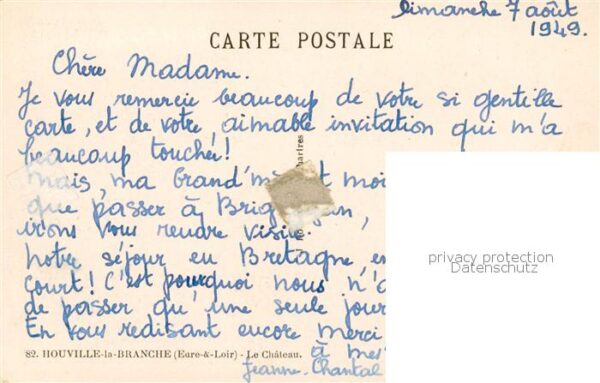 Dimanche 7 août
1949.
CARTE POSTALE
Chère Madame.
Je vous remercie beaucoup de votre si gentille
carte, et de votre, aimable invitation qui m'a
beaucoup touchée!
Mais, ma Grand' moi
que passer à
irons vous rendre
Notre séjour en Bretagne,
court! C'est pourquoi nous n'a
de passer qu'une seule jour
En vous redisant encore merci
à mes
Jeanne-Chantal
82. HOUVILLE-la-BRANCHE (Eure-&-Loir) - Le Château.
privacy protection
Datenschutz